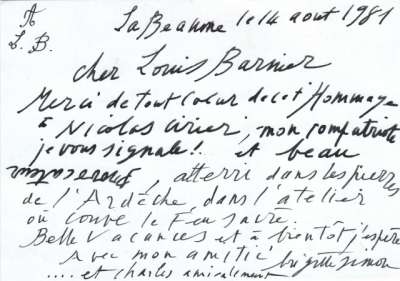 A
L. B.
La Beaume le 14 aout 1981
cher Louis Barnier
Merci de tout coeur de cet Hommage
à Nicolas Cirier, mon compatriote
je vous signale! et beau
, atterri dans les pierres
de l'Ardèche, dans l'atelier
où couve le Feu sacré.
Belle vacances et à bientôt j'espère
Avec mon amitié brigitte simon
.... et charles amicalement